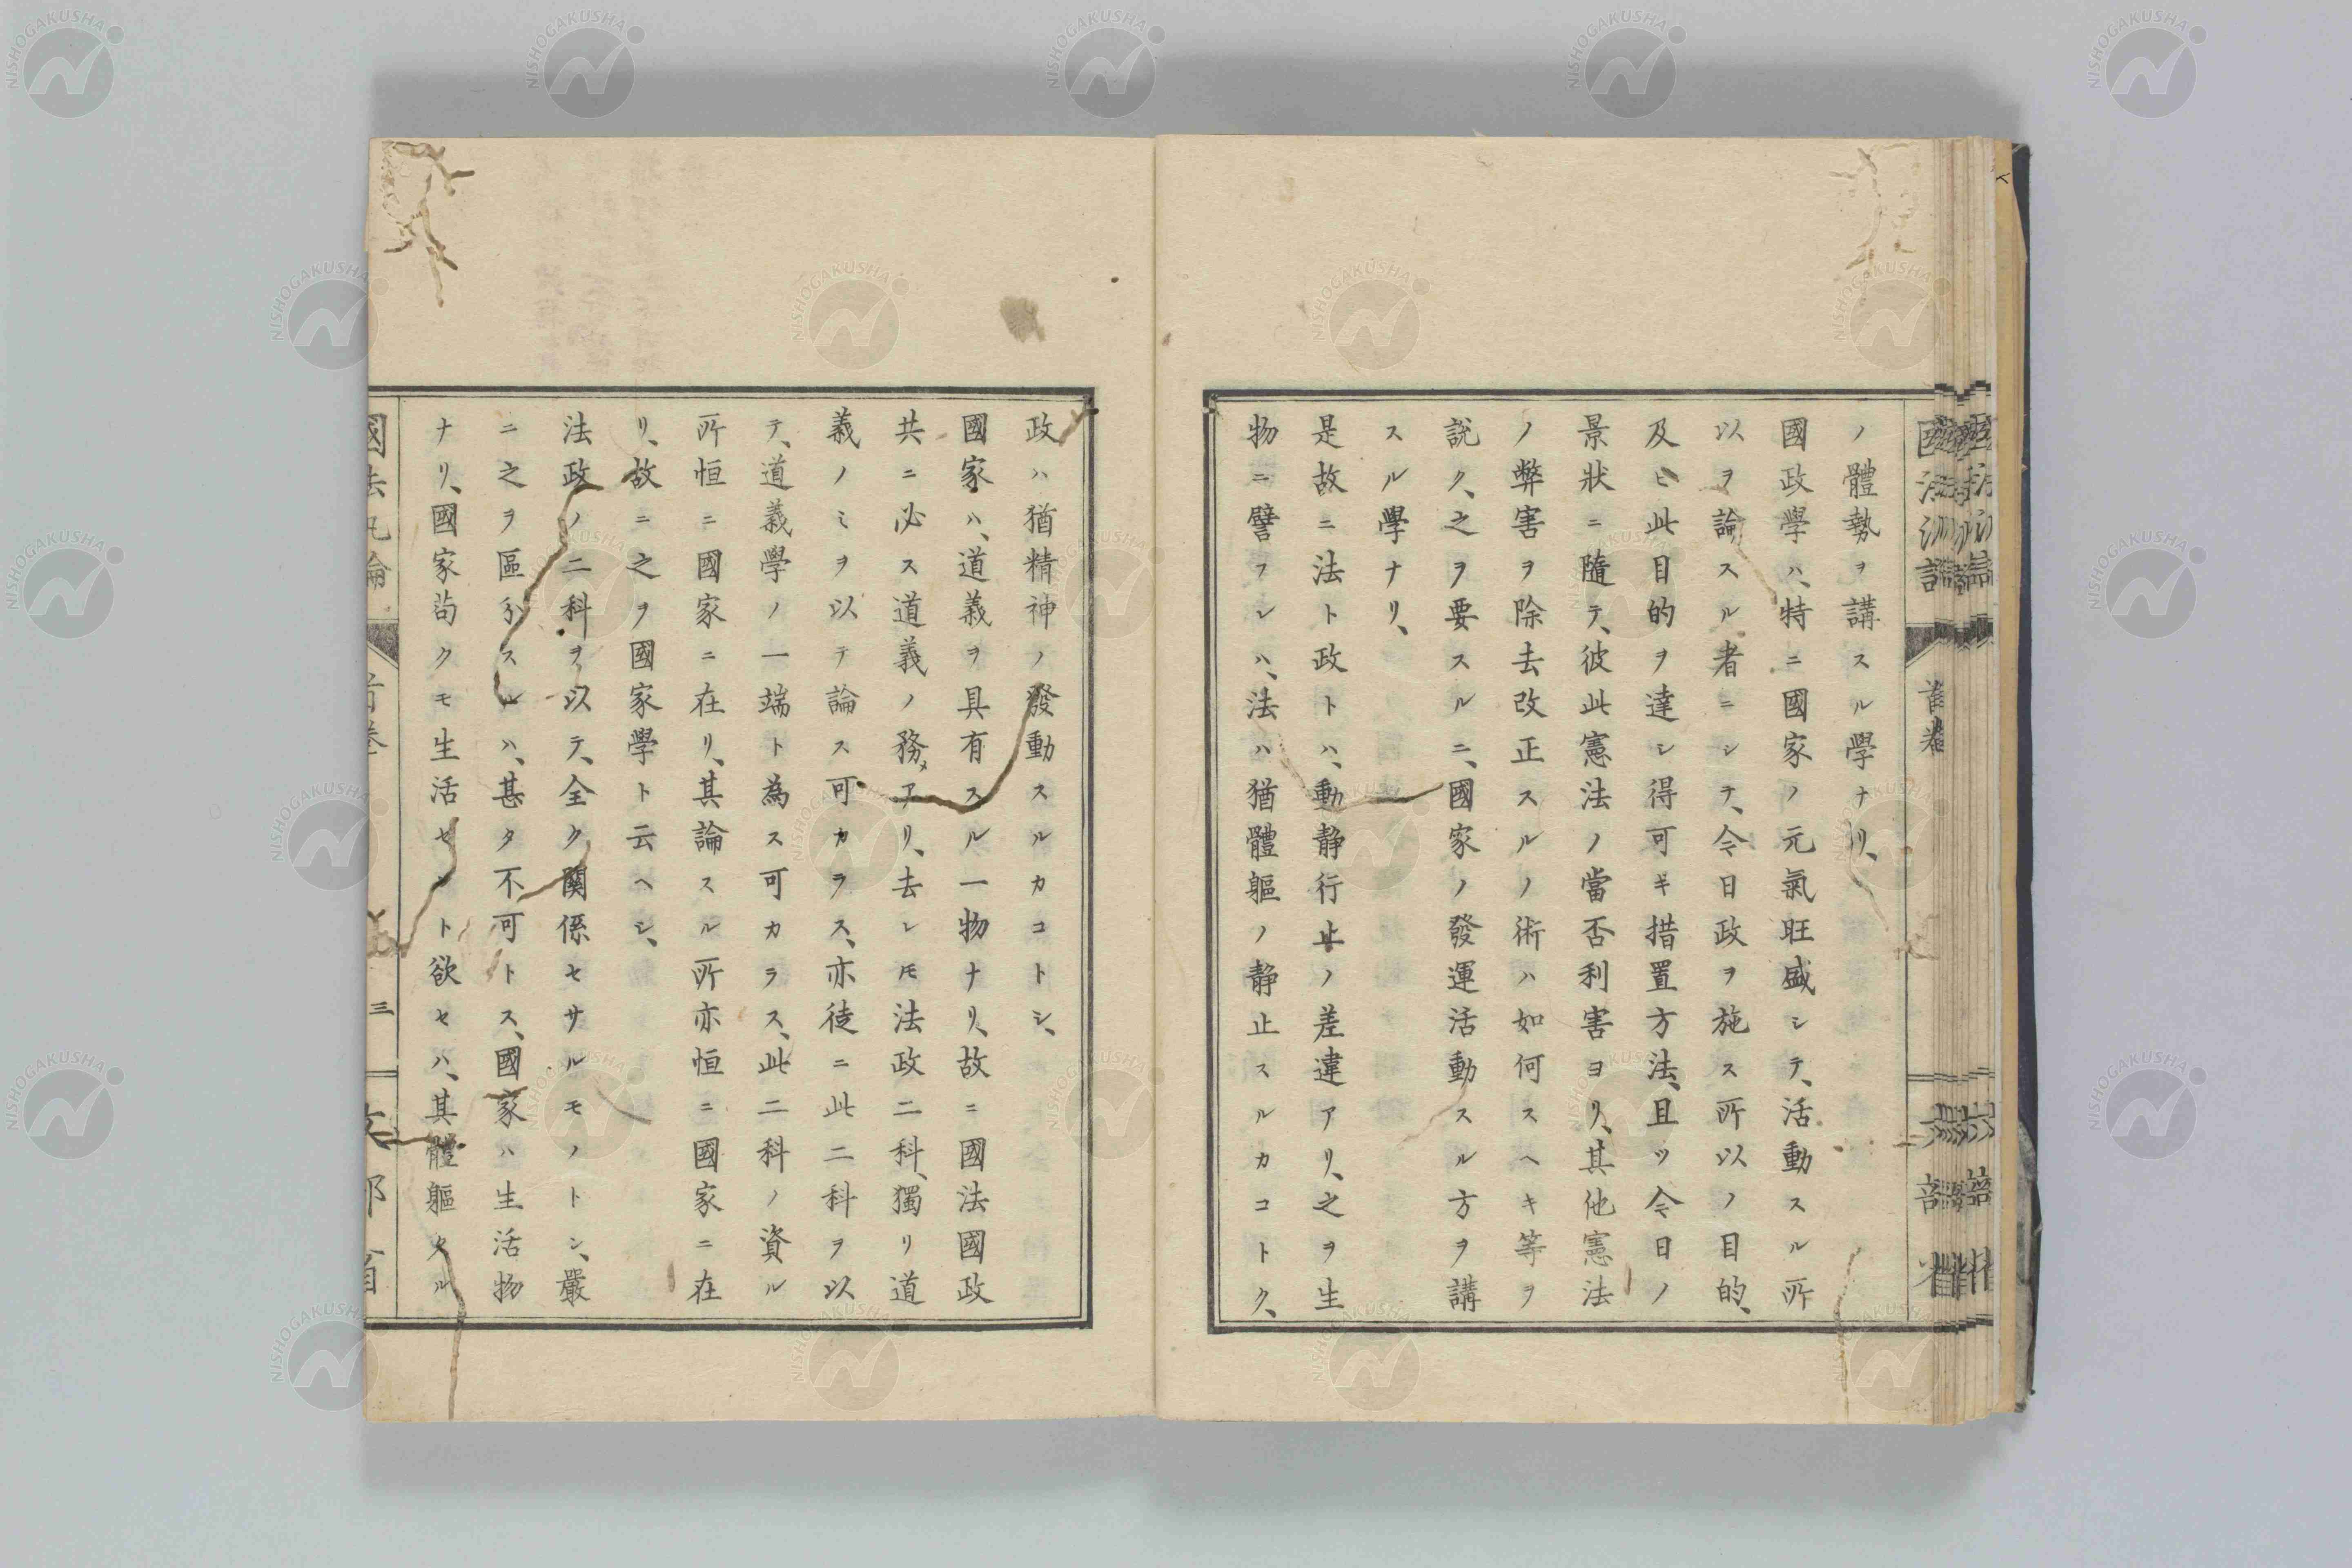 ノ體勢ヲ講スル學ナリ、
國政學ハ、特ニ國家ノ元氣旺盛シテ、活動スル所
以ヲ論スル者ニシテ、今日政ヲ施ス所以ノ目的、
及ヒ此目的ヲ達シ得可キ措置方法、且ツ今日ノ
景狀ニ隨テ、彼此憲法ノ當否利害ヨリ、其他憲法
ノ弊害ヲ除去改正スルノ術ハ如何スヘキ等ヲ
說ク、之ヲ要スルニ、國家ノ發運活動スル方ヲ講
スル學ナリ、
是故ニ法ト政トハ、動靜行止ノ差違アリ、之ヲ生
物ニ譬フレハ、法ハ猶體軀ノ靜止スルカコトク、
政ハ猶精神ノ發動スルカコトシ、
國家ハ、道義ヲ具有スル一物ナリ、故ニ國法國政
共ニ必ス道義ノ務メアリ、去レ𪜈法政二科、獨リ道
義ノミヲ以テ論ス可カラス、亦徒ニ此二科ヲ以
テ、道義學ノ一端ト為ス可カラス、此二科ノ資ル
所恒ニ國家ニ在リ、其論スル所亦恒ニ國家ニ在
リ、故ニ之ヲ國家學ト云ヘシ、
法政ノ二科ヲ以テ、全ク關係セサルモノトシ、嚴
ニ之ヲ區分スルハ、甚タ不可トス、國家ハ生活物
ナリ、國家苟クモ生活センート欲セハ、其體軀タル
國法汎論 首卷 三 文部省
NISHOGAKUSHA